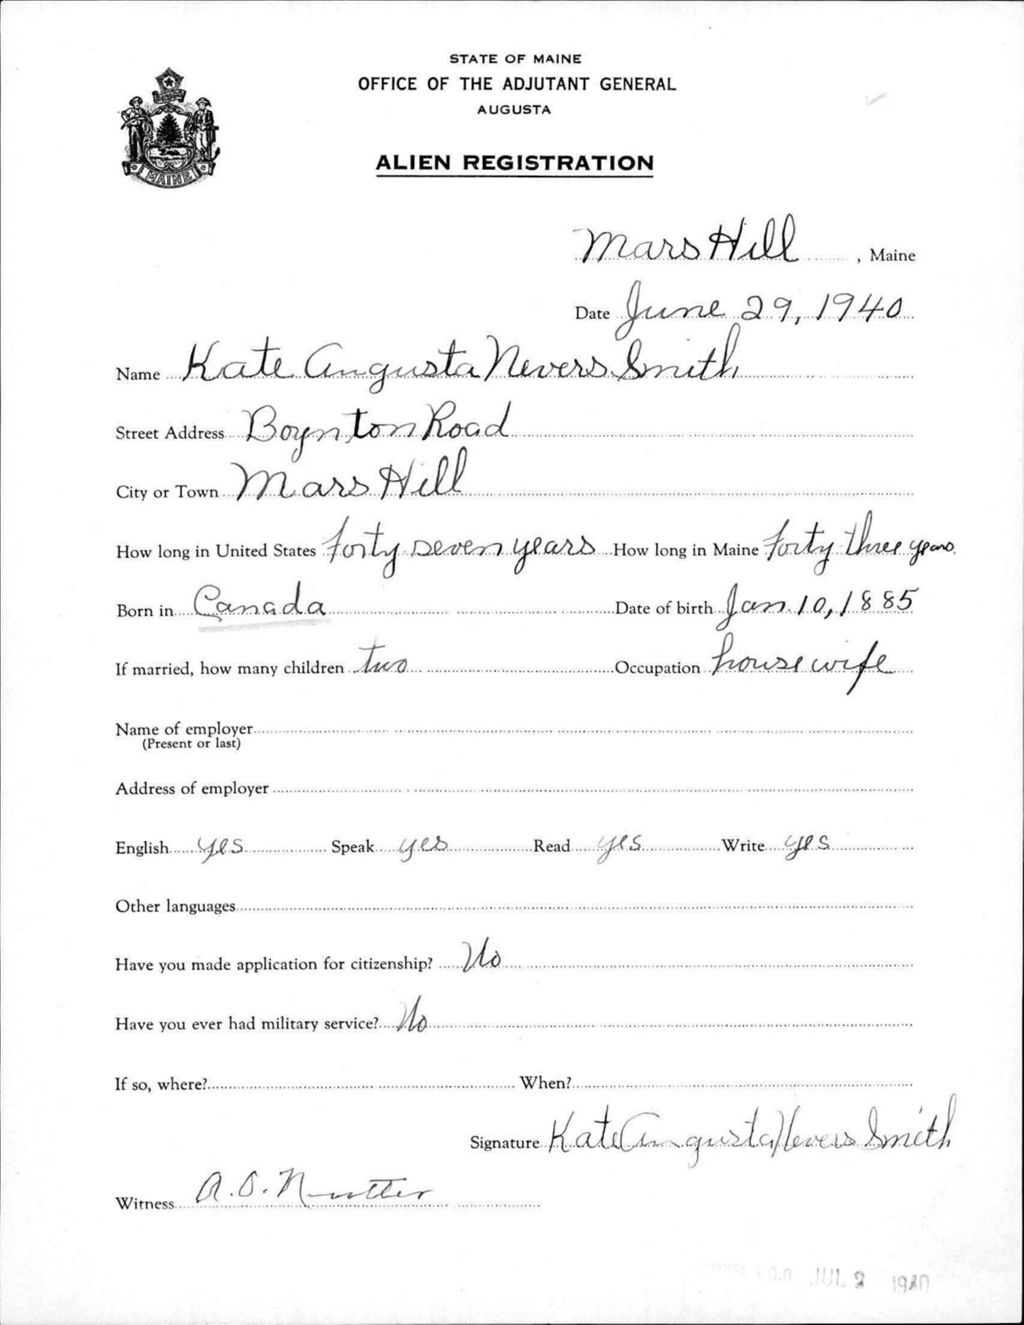 STATE OF MAINE
OFFICE OF THE ADJUTANT GENERAL
AUGUSTA
ALIEN REGISTRATION
MAINE
Mars Hill, Maine
Date June 29, 1940
Name Kate Angusta Nevers Smith
Street Address Boynton Road
City or Town Mars Hill
How long in United States forty seven years How long in Maine forty three years
Born in Canada Date of birth Jan. 10, 1885
If married, how many children two Occupation housewife
Name of employer
(Present or last)
Address of employer
English yes Speak yes Read yes Write yes
Other languages
Have you made application for citizenship? No
Have you ever had military service? No
If so, where? When?
Signature Kate Angusta Nevers Smith
Witness A. O. Nutter
A.G.O. JUL 2 1940